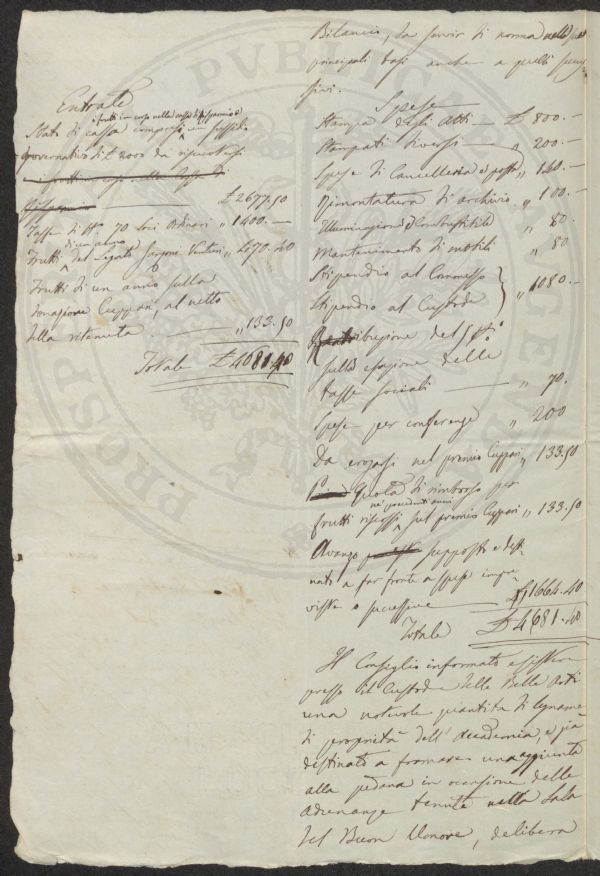 Entrate
i frutti in corso nella cassa di risparmio e
Stato di cassa compresi un sussidio
governativo di £ 2000 da riscuotersi
e i frutti in corso alla Cassa di
Risparmio £ 2677.50
Tasse di N° 70 Soci Ordinari „ 1400.—
di un anno
Frutti del Legato Sargone Venturi „ 470.40
Frutti di un anno sulla
donazione Cuppari, al netto
della ritenuta „ 133.50
Totale £ 4681.40
Bilancio, da servir di norma nelle sue
principali basi anche a quelli succes
sivi.
Spese
Stampa degli Atti — £ 800.—
Stampati diversi — „ 200.—
Spese di Cancelleria e posta „ 140.—
Rimontatura di archivio „ 100.—
Illuminazione, e Combustibile „ 80.—
Mantenimento di mobili „ 80
Stipendio al Commesso
Stipendio al Custode „ 1080.—
Retribuzione del
sulla esazione delle
tasse sociali — „ 70.
Spese per conferenze „ 200
Da erogarsi nel premio Cuppari „ 133.50
Quota di rimborso per
ne' precedenti anni
frutti riscossi sul premio Cuppari „ 133.50
Avanzo supposto e desti
nato a far fronte a spese impre
viste e successive — „ 1664.40
Totale £ 4681.40
Il Consiglio informato esistere
presso il Custode delle Belle Arti
una notevole quantità di legname
di proprietà dell' Accademia, e già
destinato a formare una aggiunta
alla pedana in occasione delle
adunanze tenute nella Sala
del Buon Umore, delibera